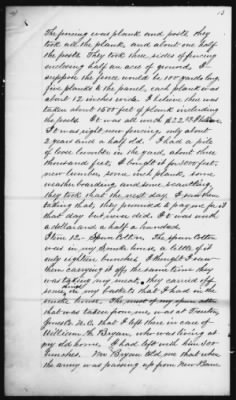 13
The fencing was plank and posts, they
took all the plank, and about one half
the posts. They took three sides of fencing
inclosing half an acre of ground. I
suppose the fence would be 100 yards long
five planks to the panel, each plank was
about 12 inches wide. I believe there was
taken about 1500 feet of plank including
the posts. It was all worth $22.50
It was right new fencing only about
2 years and a half old. I had a pile
of loose lumber in the yard, about three
thousand feet. I bought it for 3000 feet,
new lumber some inch plank, some
weatherboarding and some scantling
they took that the next day. I saw them
taking that, they promised to pay me for it
that day but never did. It was worth
a dollar and a half a hundred
Item 12 - Spun Cotton. The spun cotton
was in my smoke house, a little of it
only eighteen bunches. I thought I saw
them carrying it off the same time they
was taking my meat, they carried off
some in my baskets that I had in the
smoke house. The most of my spun cotton
that was taken from me, was at Trenton,
Jones Co. N.C. that I left there in care of
William A. Bryan, who was living at
my old home. I had left with him 300
bunches. Mr Bryan told me that when
the army was passing up from New Bern